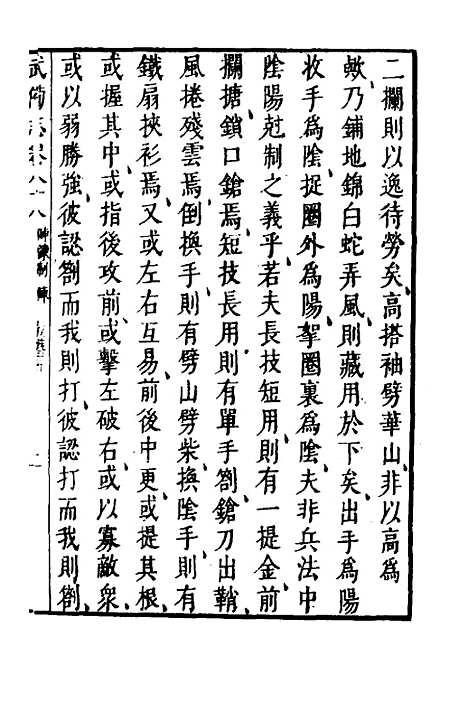 二攔則以逸待勞矣高搭袖劈華山非以高為
歟乃鋪地錦白蛇弄風則藏用於下矣出手為陽
收手為陰捉圈外為陽拏圈裏為陰夫非兵法中
陰陽尅制之義乎若夫長技短用則有一提金前
攔搪鎖口鎗焉短技長用則有單手劄鎗刀出鞘
風捲殘雲焉倒換手則有劈山劈柴換陰手則有
鐵扇挾衫焉又或左右互易前後中更或提其根
或握其中或指後攻前或擊左破右或以寡敵衆
或以弱勝強彼認劄而我則打彼認打而我則劄
武備志卷八十八